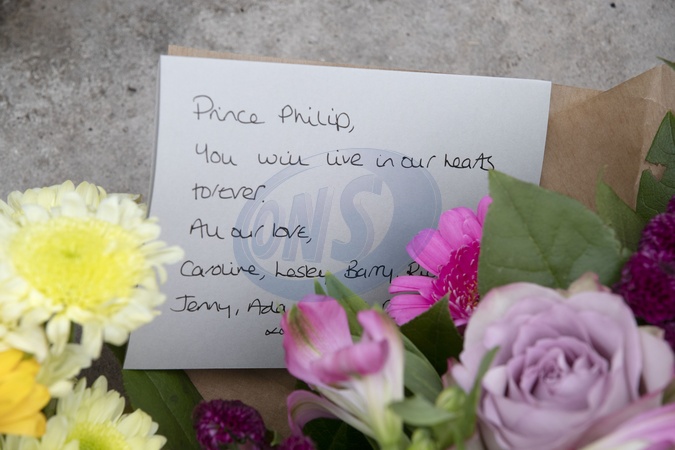 Prince Philip,
You will live in our hearts
forever.
All our love,
Caroline, Lesley Barry,
Jenny,
ONS